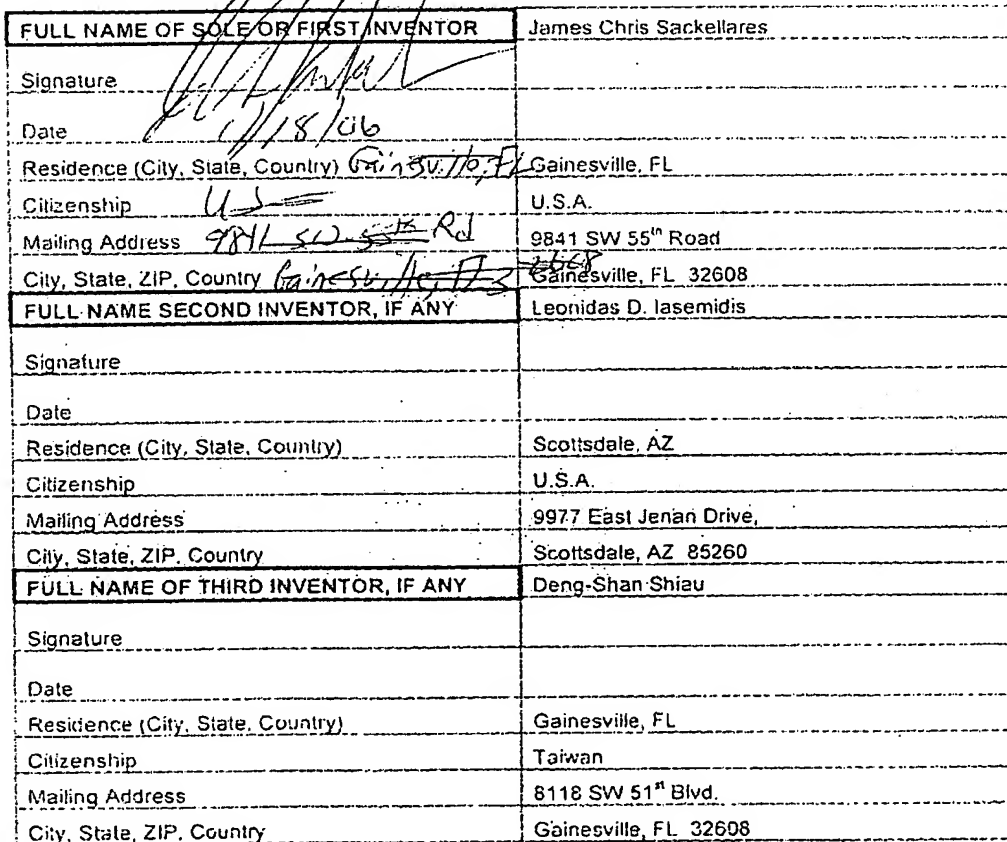 FULL NAME OF SOLE OR FIRST INVENTOR James Chris Sackellares
Signature
Date 1/18/06
Residence (City, State, Country) Gainesville, FL Gainesville, FL
Citizenship US U.S.A.
Mailing Address 9841 SW 55th Rd 9841 SW 55th Road
City, State, ZIP, Country Gainesville, FL 32608 Gainesville, FL 32608
FULL NAME SECOND INVENTOR, IF ANY Leonidas D. Iasemidis
Signature
Date
Residence (City, State, Country) Scottsdale, AZ
Citizenship U.S.A.
Mailing Address 9977 East Jenan Drive,
City, State, ZIP, Country Scottsdale, AZ 85260
FULL NAME OF THIRD INVENTOR, IF ANY Deng-Shan Shiau
Signature
Date
Residence (City, State, Country) Gainesville, FL
Citizenship Taiwan
Mailing Address 8118 SW 51st Blvd.
City, State, ZIP, Country Gainesville, FL 32608